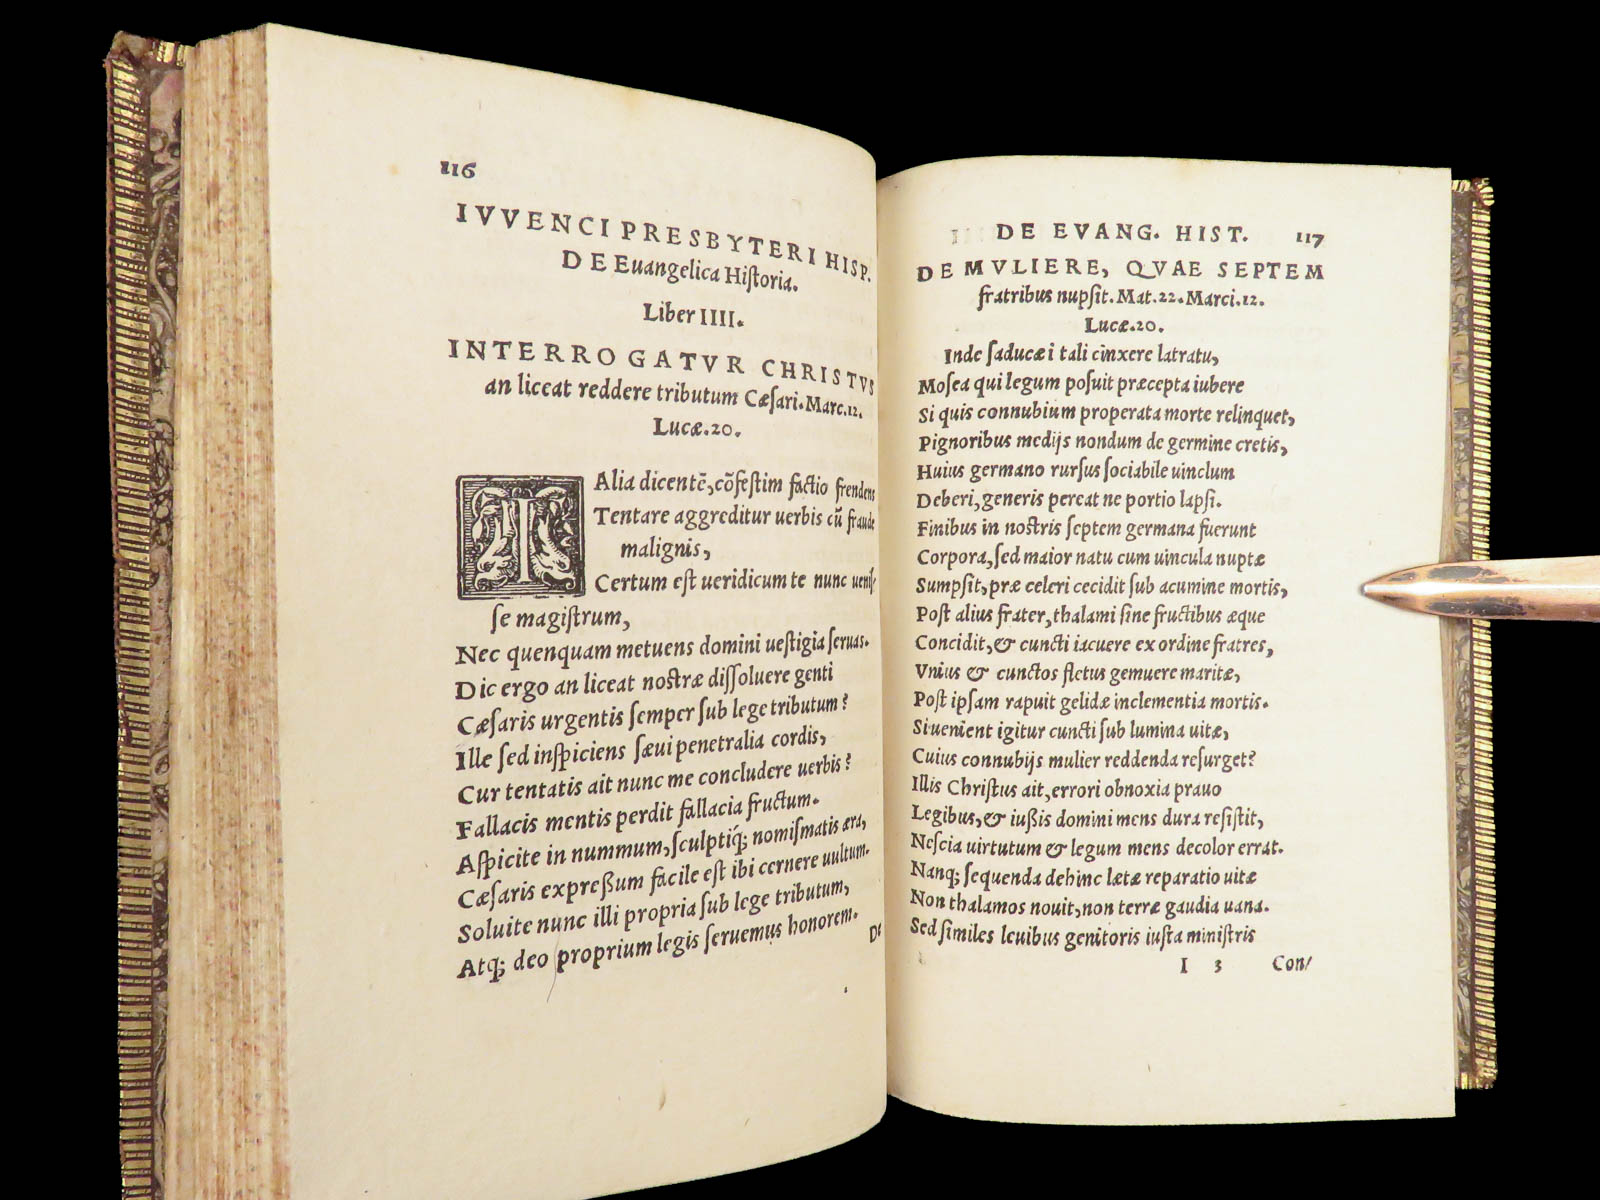 116
IVVENCI PRESBYTERI HISP.
DE Euangelica Hiſtoria.
Liber IIII.
INTERROGATVR CHRISTVS
an liceat reddere tributum Cæſari. Marc.12.
Lucæ.20.
TAlia dicentẽ, cõfeſtim factio frendens
Tentare aggreditur uerbis cũ fraude
malignis,
Certum eſt ueridicum te nunc ueniſ-
ſe magiſtrum,
Nec quenquam metuens domini ueſtigia ſeruas.
Dic ergo an liceat noſtræ diſſoluere genti
Cæſaris urgentis ſemper ſub lege tributum?
Ille ſed inſpiciens ſæui penetralia cordis,
Cur tentatis ait nunc me concludere uerbis?
Fallacis mentis perdit fallacia fructum.
Aſpicite in nummum, ſculptiq́; nomiſmatis æra,
Cæſaris expreßum facile eſt ibi cernere uultum.
Soluite nunc illi propria ſub lege tributum,
Atq; deo proprium legis ſeruemus honorem.
De
DE EVANG. HIST. 117
DE MVLIERE, QVAE SEPTEM
fratribus nupſit. Mat.22. Marci.12.
Lucæ.20.
Inde ſaducæi tali cinxere latratu,
Moſea qui legum poſuit præcepta iubere
Si quis connubium properata morte relinquet,
Pignoribus medijs nondum de germine cretis,
Huius germano rurſus ſociabile uinclum
Deberi, generis pereat ne portio lapſi.
Finibus in noſtris ſeptem germana fuerunt
Corpora, ſed maior natu cum uincula nuptæ
Sumpſit, præ celeri cecidit ſub acumine mortis,
Poſt alius frater, thalami ſine fructibus æque
Concidit, & cuncti iacuere ex ordine fratres,
Vnius & cunctos fletus gemuere maritæ,
Poſt ipſam rapuit gelidæ inclementia mortis.
Si uenient igitur cuncti ſub lumina uitæ,
Cuius connubijs mulier reddenda reſurget?
Illis Chriſtus ait, errori obnoxia prauo
Legibus, & iußis domini mens dura reſiſtit,
Neſcia uirtutum & legum mens decolor errat.
Nanq; ſequenda dehinc lætæ reparatio uitæ
Non thalamos nouit, non terræ gaudia uana.
Sed ſimiles leuibus genitoris iuſta miniſtris
I 3 Con/